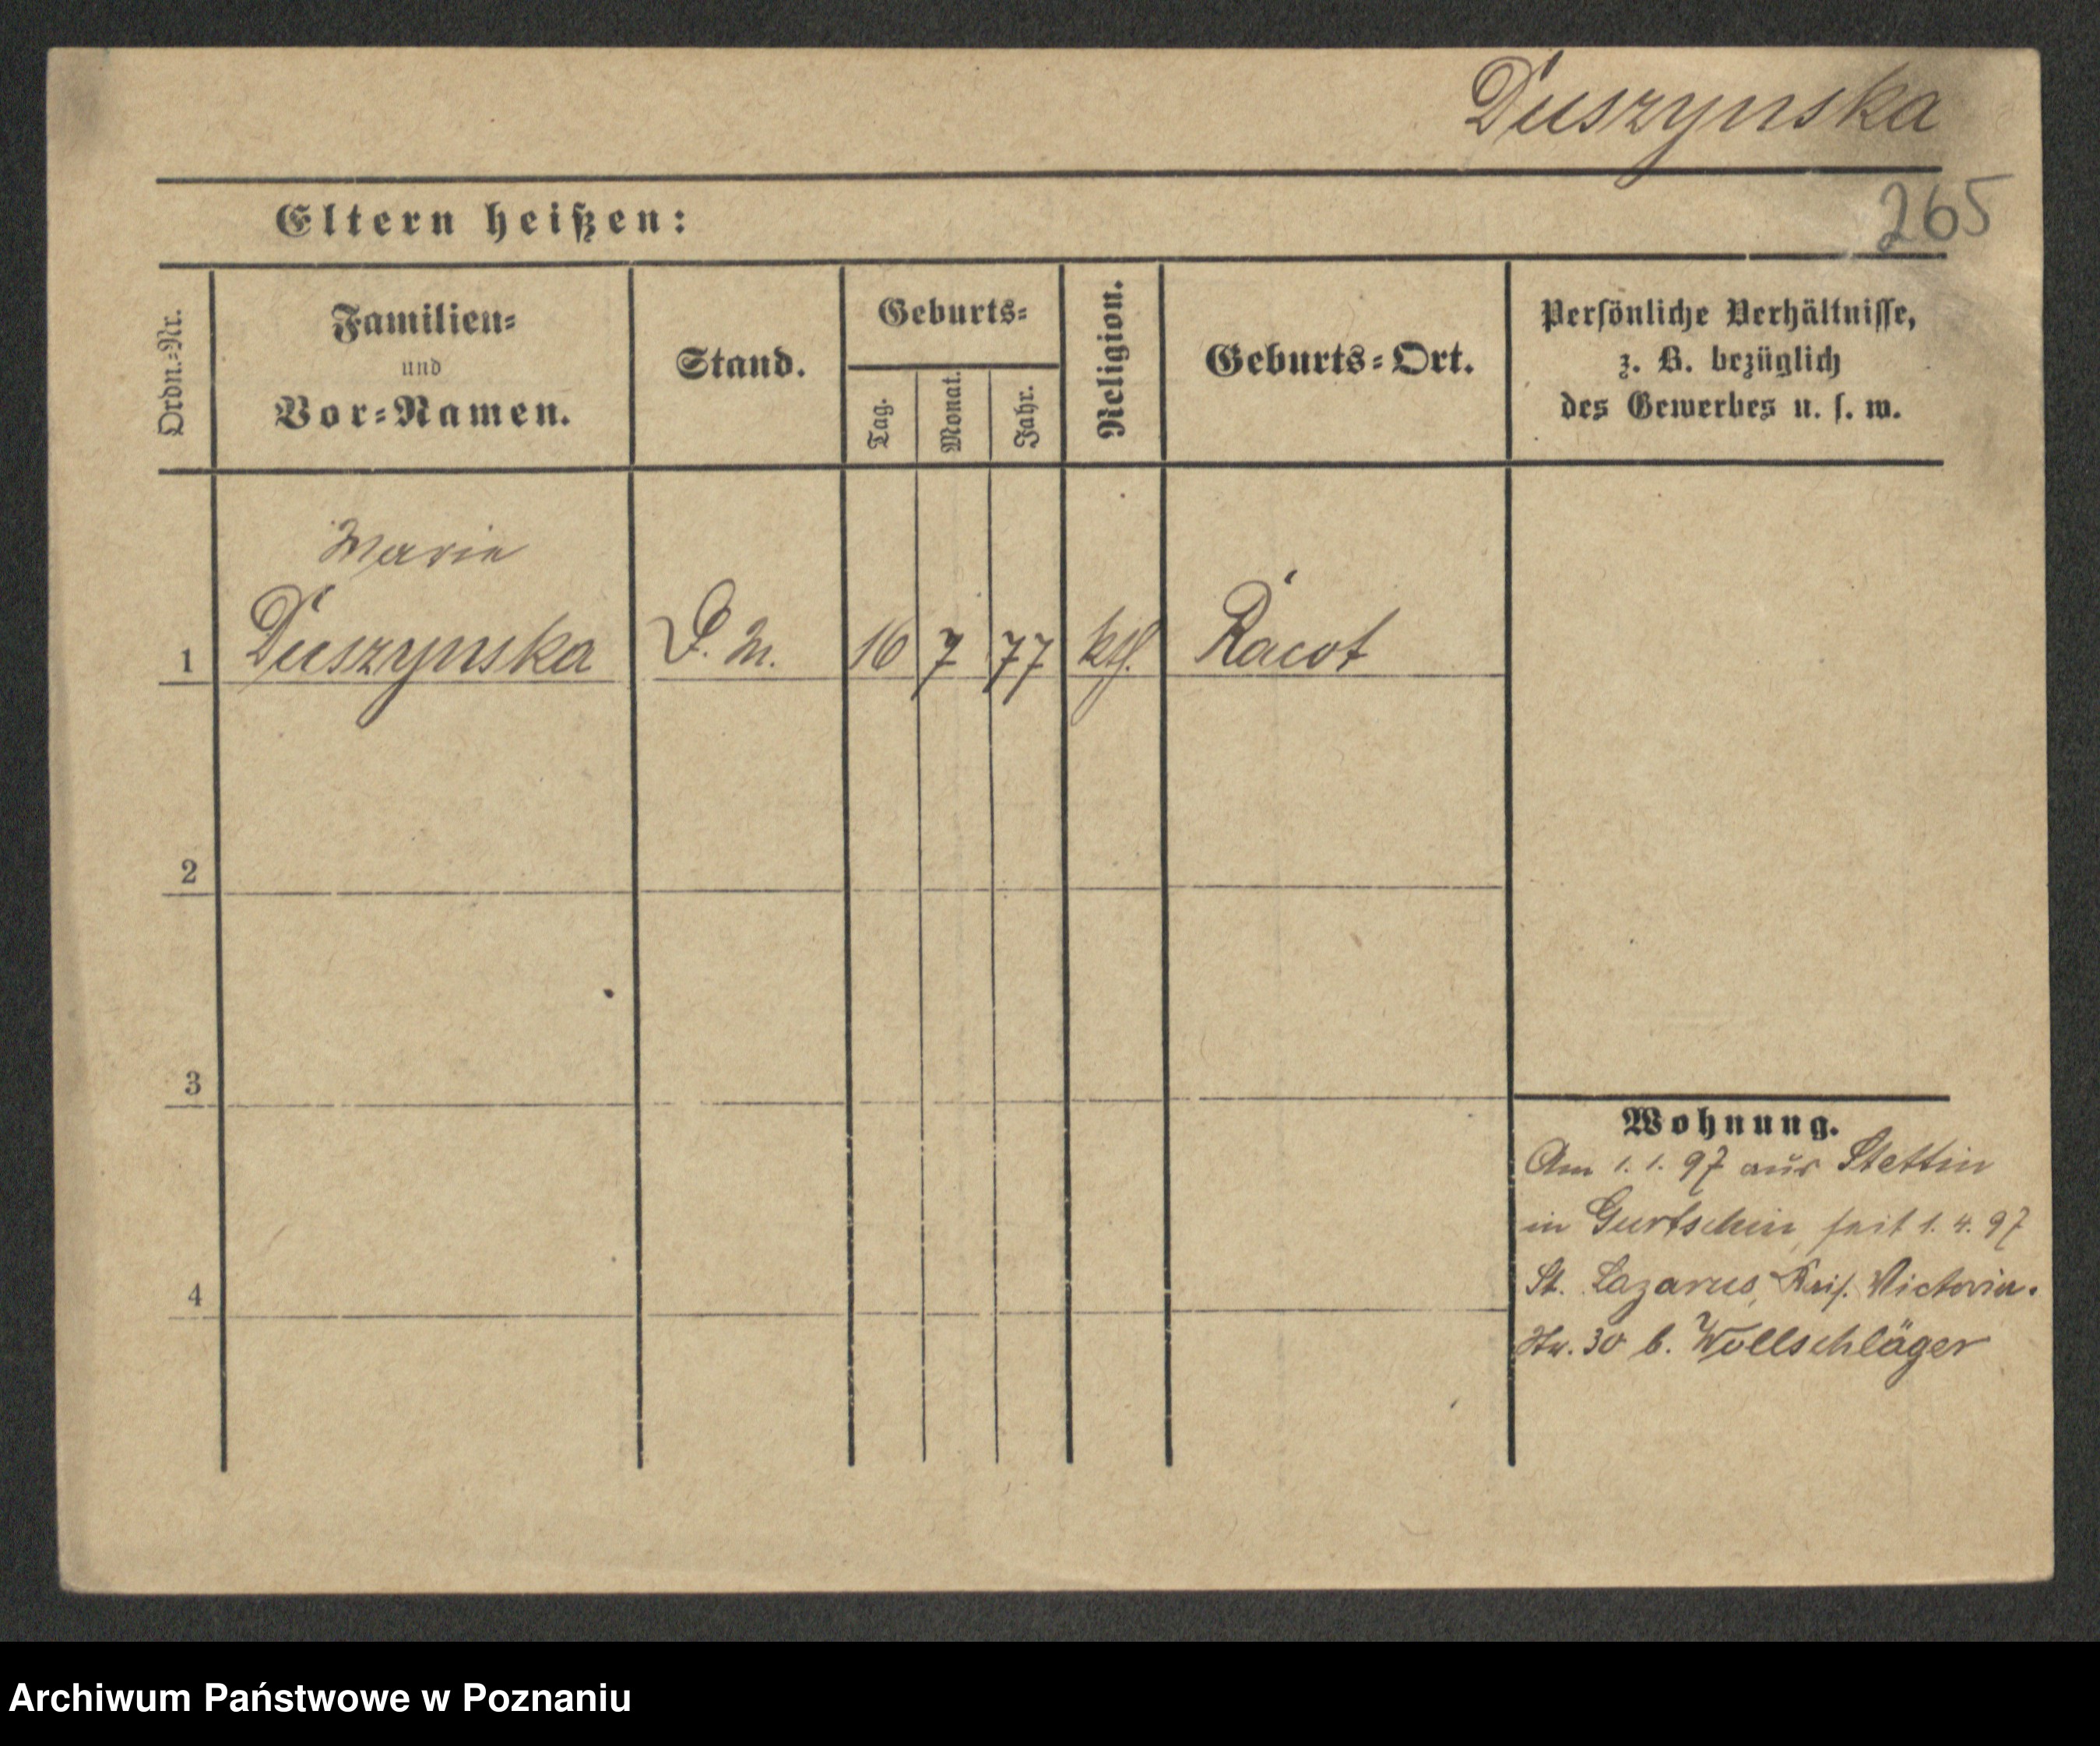 Duszynska
265
Eltern heißen:
Ordn.=Nr.
Familien=
und
Vor=Namen.
Stand.
Geburts=
Tag.
Monat.
Jahr.
Religion.
Geburts=Ort.
Persönliche Verhältnisse,
z. B. bezüglich
des Gewerbes u. s. w.
Marie
1 Duszynska D. M. 16 7 77 kth. Racot
2
3
4
Wohnung.
Am 1. 1. 97 aus Stettin
in Gurtschin, seit 1. 4. 97
St. Lazarus, Kais. Victoria.
Str. 30 b. Wollschläger
Archiwum Państwowe w Poznaniu